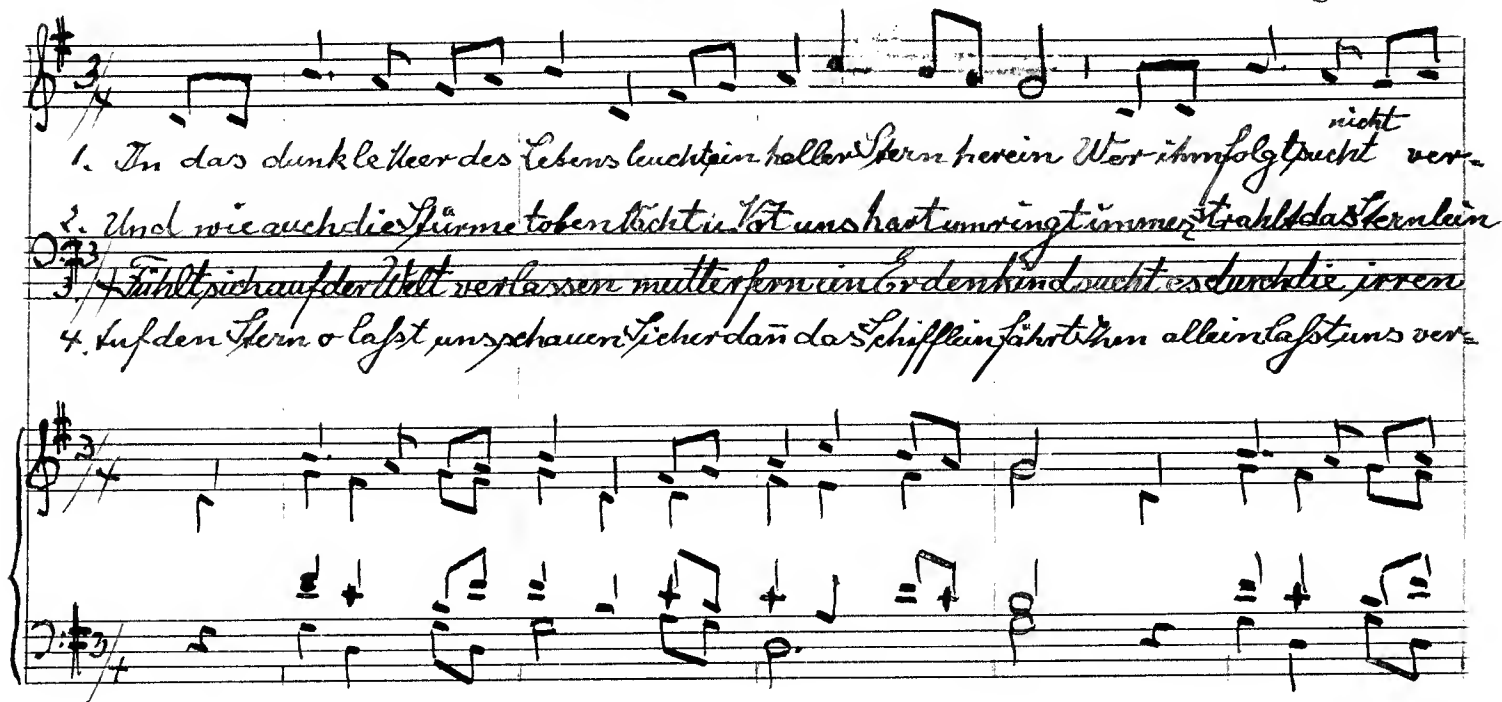 nicht
1. In das dunkle Meer des Lebens leucht ein heller Stern herein Wer ihm folgt sucht ver-
2. Und wie auch die Stürme toben Nacht u. Not uns hart umringt immer strahlt das Sternlein
3. Fühlt sich auf der Welt verlassen mutterfern ein Erdenkind sucht es durch die irren
4. Auf den Stern o lasst uns schauen Sicher dan̄ das Schifflein fährt Ihm allein lasst uns ver-